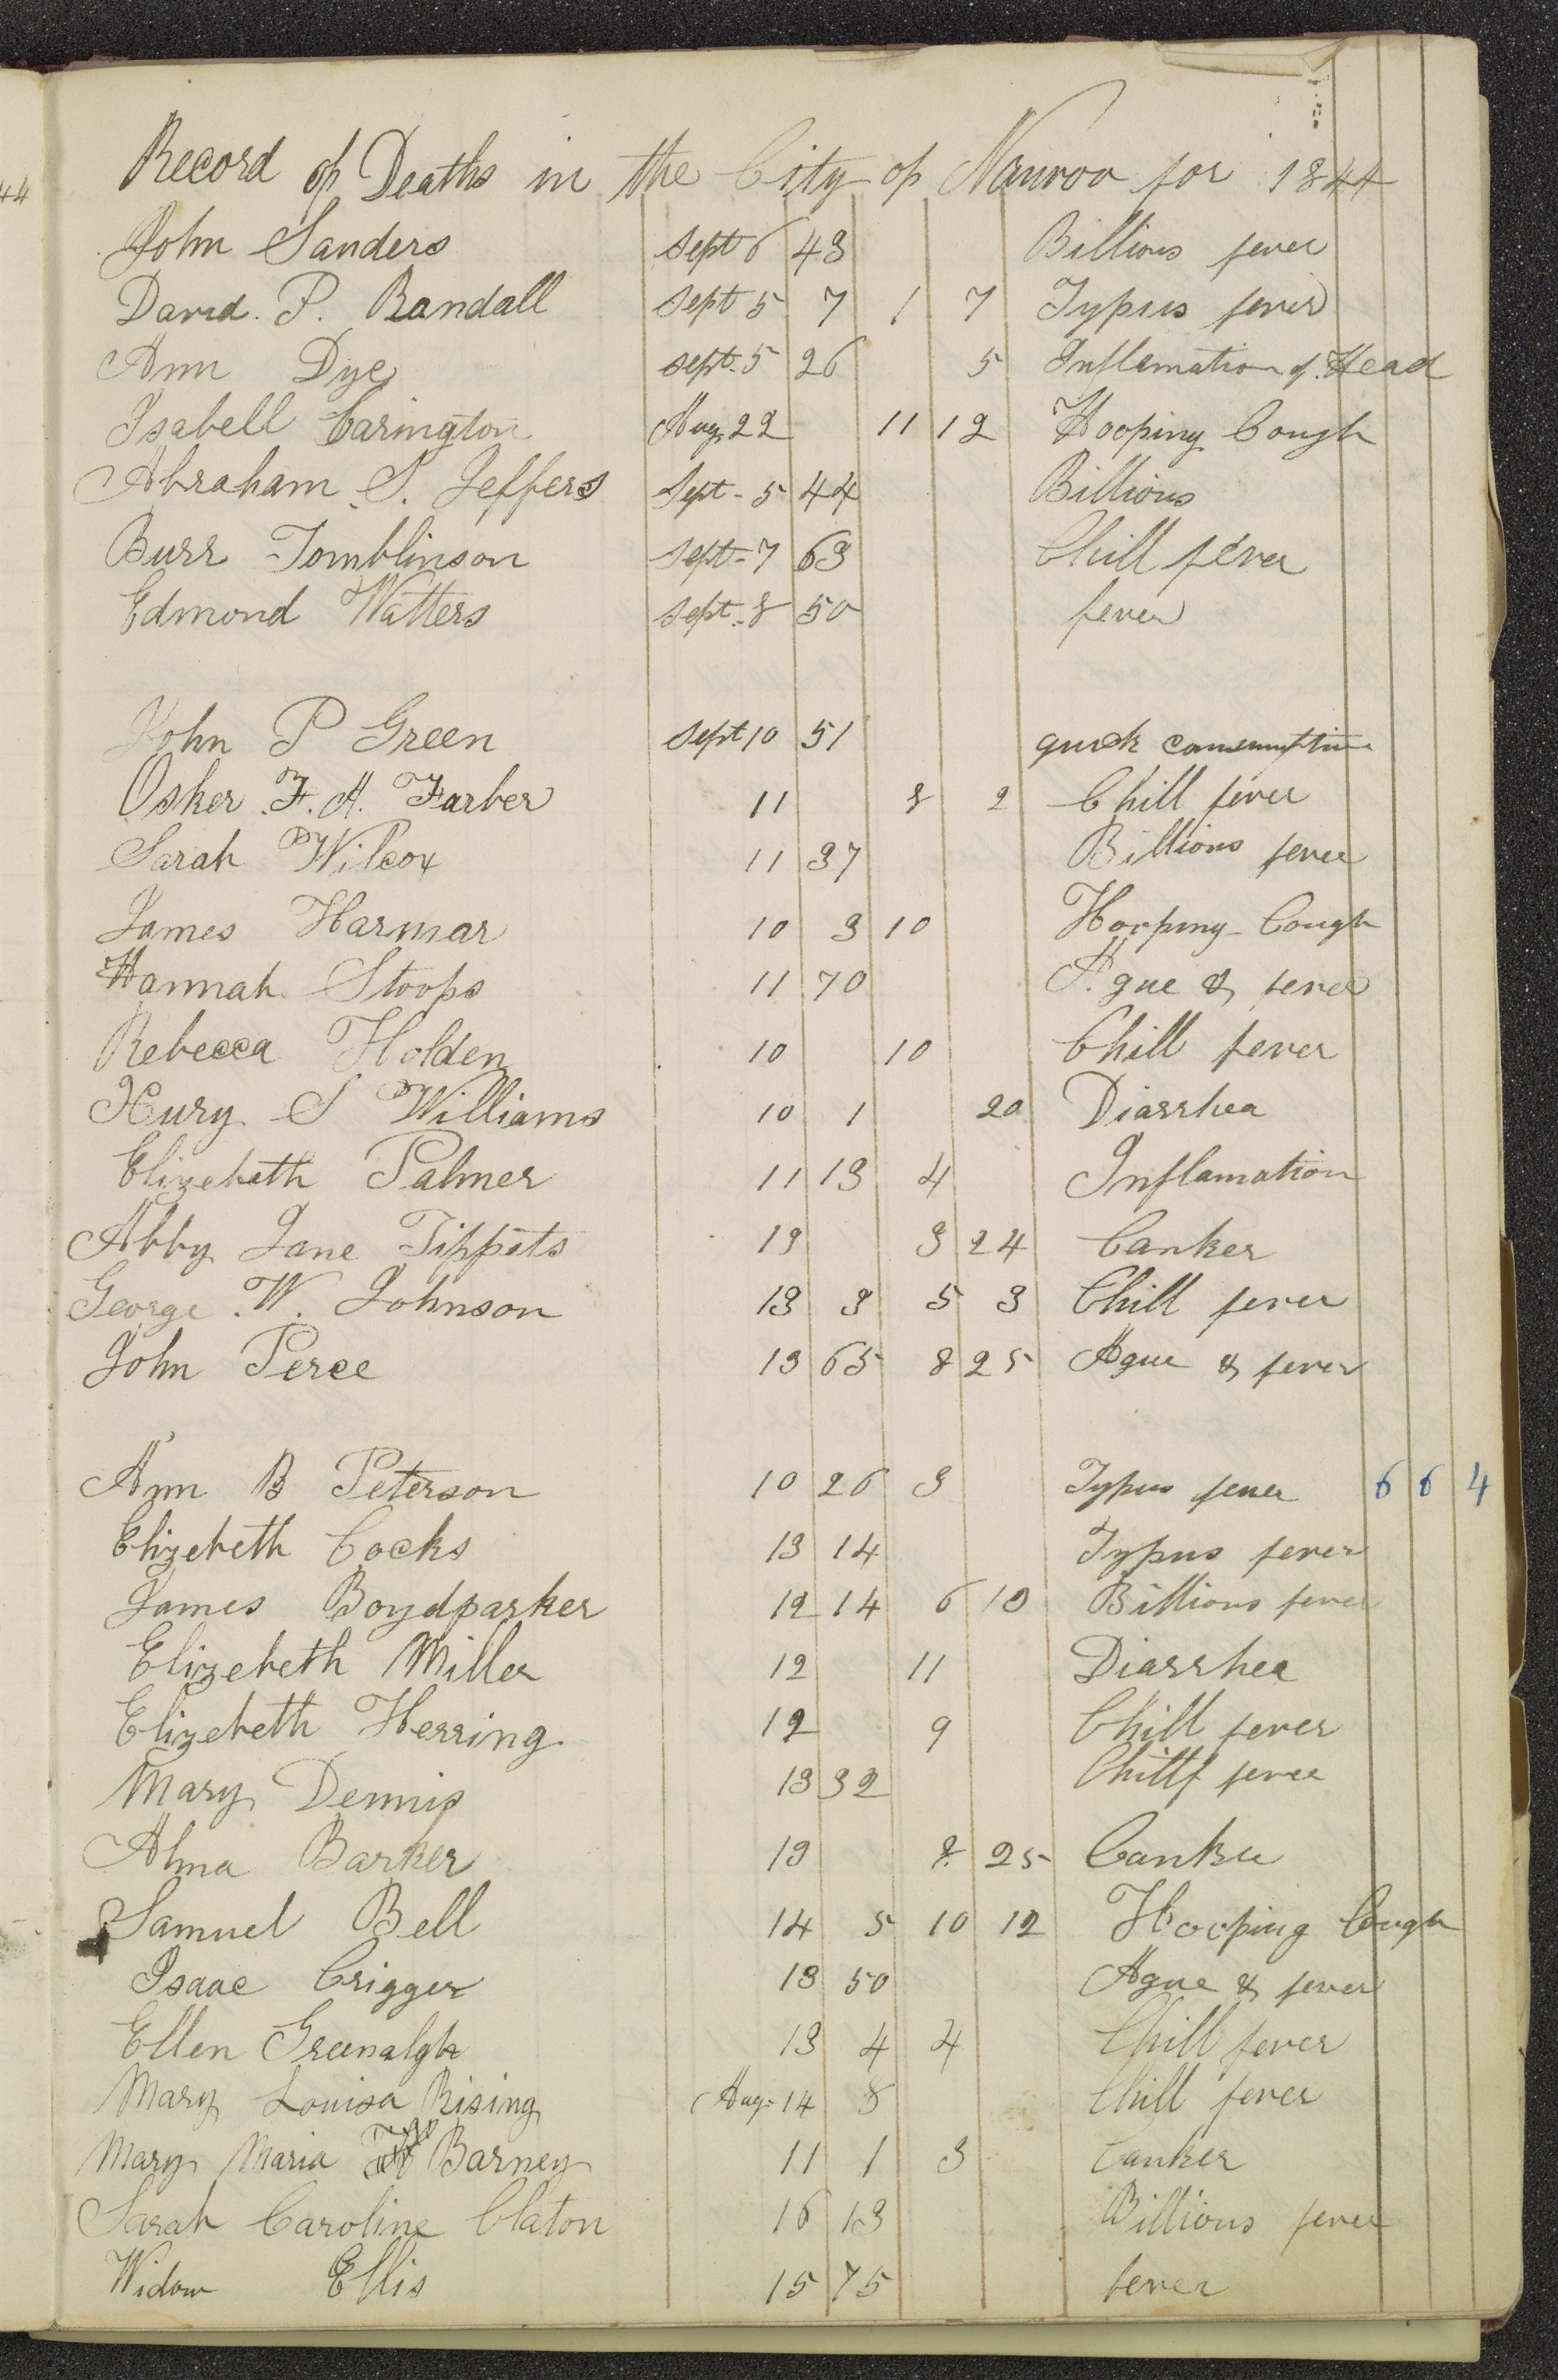 44
Record of Deaths in the City of Nauvoo for 1844
John Sanders Sept 6 43 Billious fever
David. P. Randall Sept 5 7 1 7 Typus fever
Ann Dye Sept. 5 26 5 Inflemation of. Head
Isabell Carington Aug. 22 11 12 Hooping Cough
Abraham S. Jeffers Sept - 5 44 Billious
Burr Tomblinson Sept - 7 63 Chill fever
Edmond Watters Sept - 8 50 fever
John P Green Sept 10 51 quick consumption
Osker F. A. Farber 11 8 2 Chill fever
Sarah Wilcox 11 37 Billious fever
James Harmar 10 3 10 Hooping Cough
Hannah Stoops 11 70 Ague & fever
Rebecca Holden 10 10 Chill fever
Hury S Williams 10 1 20 Diarrhea
Elizebeth Palmer 11 13 4 Inflamation
Abby Jane Tippets 13 3 24 Canker
George W. Johnson 13 3 5 3 Chill fever
John Perce 13 65 8 25 Ague & fever
Ann B Peterson 10 26 3 Typus fever 6 6 4
Elizebeth Cocks 13 14 Typus fever
James Boydparker 12 14 6 10 Billious fever
Elizebeth Miller 12 11 Diarrhea
Elizebeth Herring 12 9 Chill fever
Mary Dennis 13 32 Chill fever
Alma Barker 13 8 25 Canker
Samuel Bell 14 5 10 12 Hooping Cough
Isaac Crigger 13 50 Ague & fever
Ellen Greenalgh 13 4 4 Chill fever
Mary Louisa Rising Aug - 14 8 Chill fever
Mary Maria Barney 11 1 3 Canker
Sarah Caroline Claton 16 13 Billious fever
Widow Ellis 15 75 fever